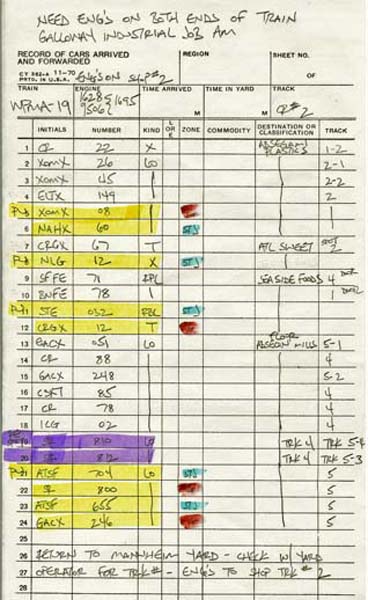 NEED ENG'S ON BOTH ENDS OF TRAIN
GALLOWAY INDUSTRIAL JOB AM
RECORD OF CARS ARRIVED AND FORWARDED
REGION
SHEET NO.
CY 552-A 11-70
PRTD. IN U.S.A.
ENG'S ON SHOP #2
OF
TRAIN ENGINE TIME ARRIVED TIME IN YARD TRACK
WPMA-19 1628 & 1695 M M #2
INITIALS NUMBER KIND L OR E ZONE COMMODITY DESTINATION OR CLASSIFICATION TRACK
1 CR 22 X ABSECON PLASTICS 1-2
2 XOMX 26 LO 2-1
3 XOMX 45 2-2
4 ELTX 149 2
5 XOMX 08
6 NAHX 60 STJ
7 CRGX 67 T ATL SWEET 2
8 NLG 12 X STJ
9 SFFE 71 RPL SEASIDE FOODS 4 DOOR
10 BNFE 78 1
11 STE 032 RBL STJ
12 CRGX 12 T
13 GACX 051 LO FLOOR ABSECON MILLS 5-1
14 CR 88 4
15 GACX 248 5-2
16 85 4
17 CR 78 4
18 ICG 02 4
19 810 LO TRK 4 TRK 5-4
20 812 TRK 4 TRK 5-3
21 ATSF 704 LO STJ 5
22 800 5
23 ATSF 655 STJ 5
24 GACX 246 5
25
26 RETURN TO MANNHEIM YARD - CHECK W/ YARD
27 OPERATOR FOR TRK# - ENG'S TO SHOP TRK # 2
28